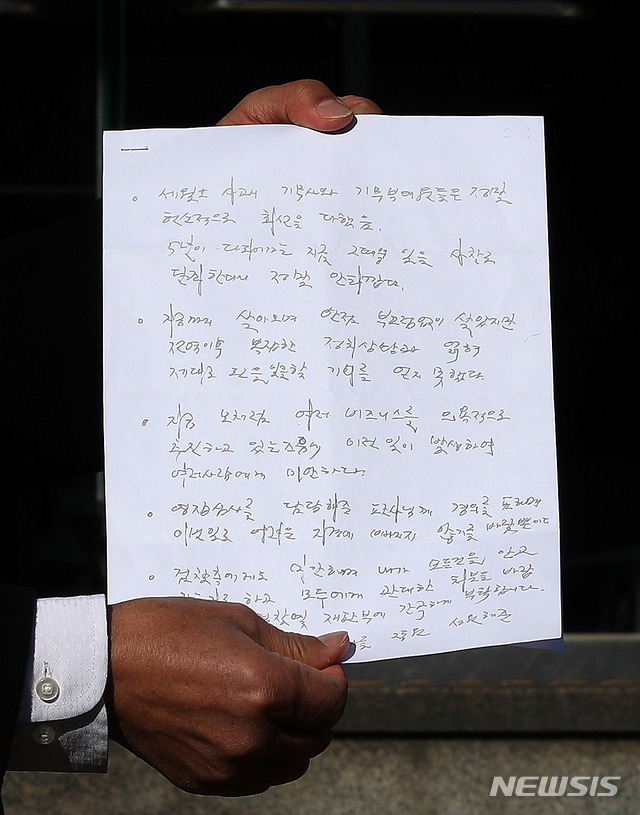 세월호 사고시 기무사와 기무부대원들은 정말
헌신적으로 최선을 다했음.
5년이 다되어가는 지금 그때의 일을 사찰로
단죄한다니 정말 안타깝다.
지금까지 살아오며 한점 부끄럼없이 살았지만
전역이후 복잡한 정치상황과 얽혀
제대로 된 일을 할 기회를 얻지 못했다.
지금 모처럼 여러 비즈니스를 의욕적으로
추진하고 있는 즈음에 이런 일이 발생하여
여러사람에게 미안하다.
영장심사를 담당해준 판사님께 경의를 표하며
이번일로 어려운 지경에 빠지지 않기를 바랄뿐이다
검찰측에게도 미안하며 내가 모든것을 안고
하고 모두에게 관대한 처분을 바랍
재판부에 간곡하게 부탁합니다.
NEWSIS